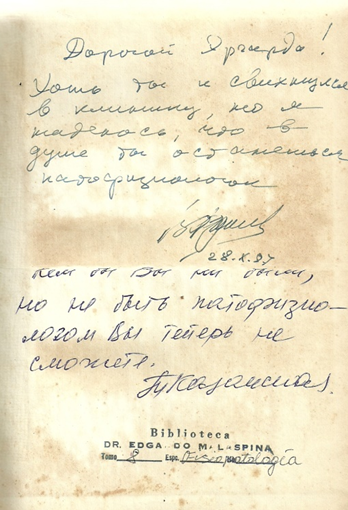 Дорогой Эдгардо!
Хоть ты и свихнулся
в клинику, но я
надеюсь, что в
душе ты останешься
патофизиологом
28.X.87
Кем бы Вы ни были,
но не быть патофизио-
логом Вы теперь не
сможете.
Biblioteca
DR. EDGARDO M. LASPINA
Tomo 8 Espc. Fisiopatología